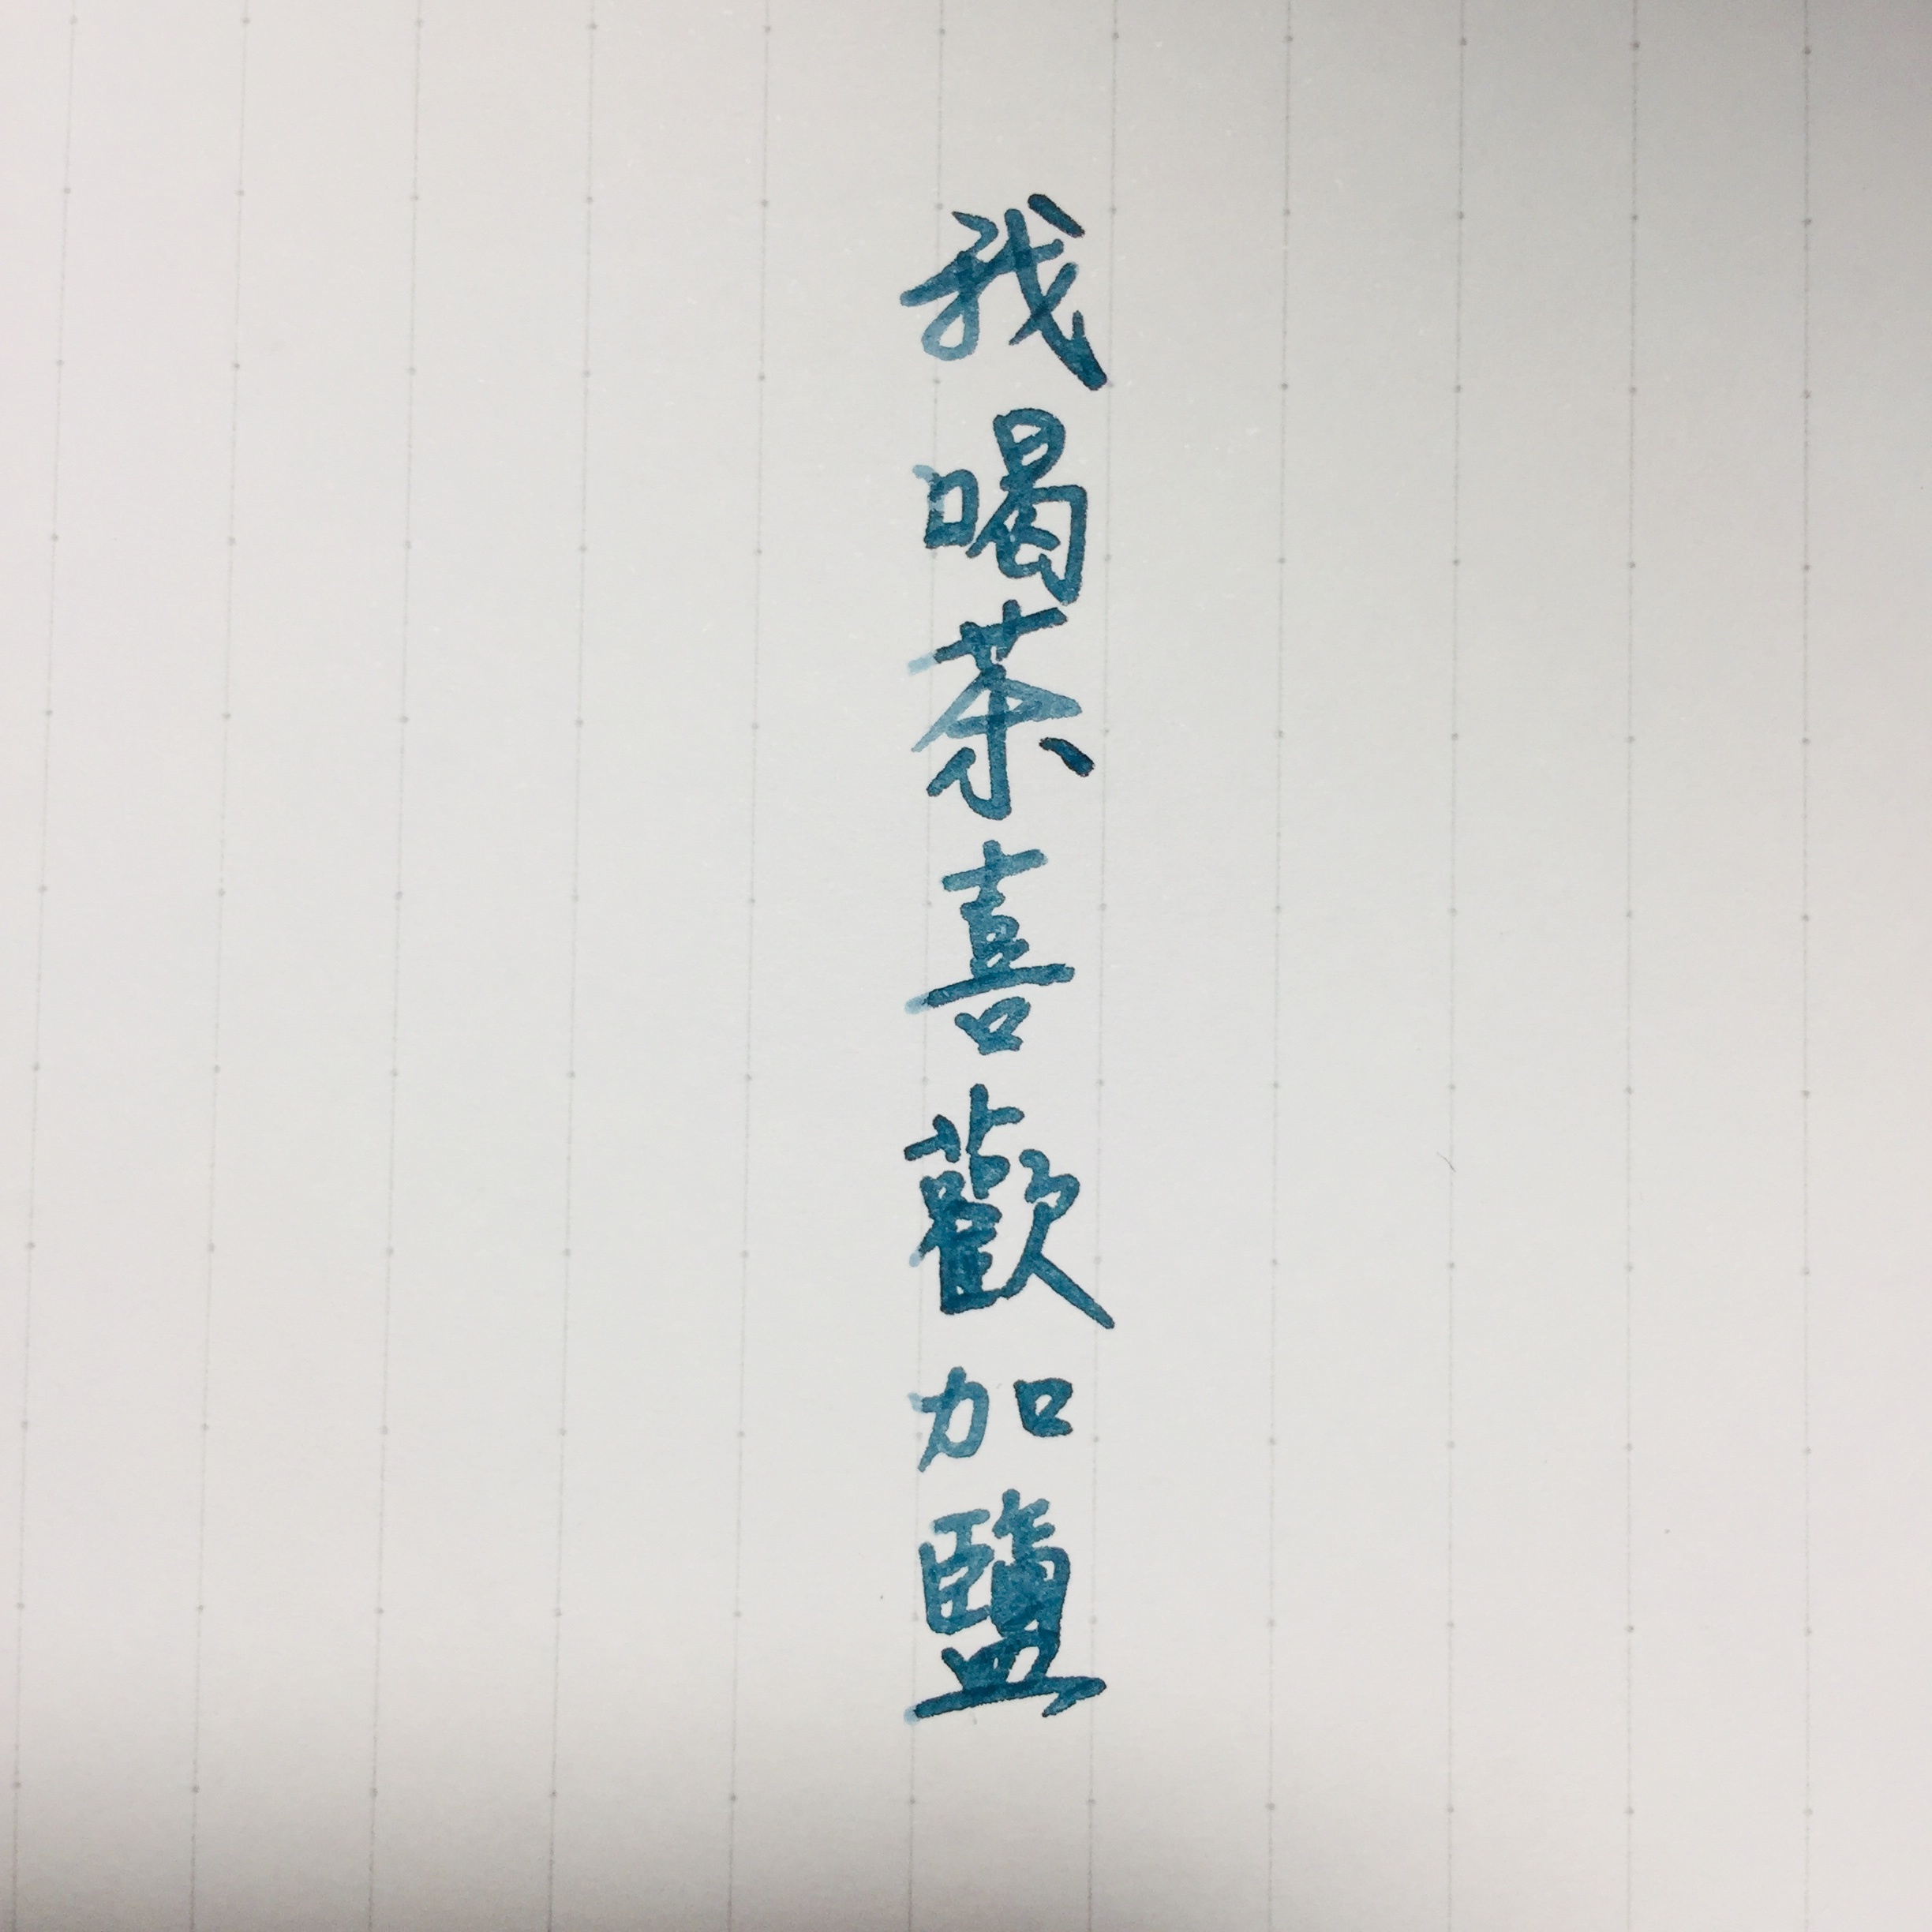 我喝茶喜歡加鹽